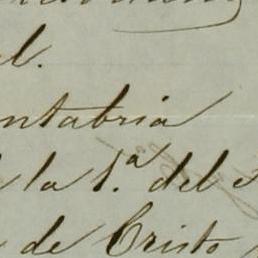 l.
ntabria
la 1.ª del
de Cristo